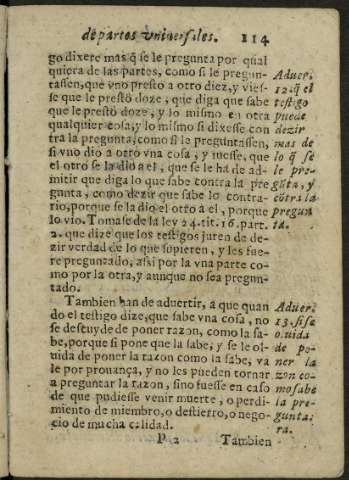 de partos vniuersales. 114
go dixere mas q̃ se le pregunta por qual
quiera de las partes, como si le pregun-
tassen, que vno presto a otro diez, y vies-
se que le prestò doze, que diga que sabe
que le prestò doze, y lo mismo en otra
qualquier cosa, y lo mismo si dixesse con
tra la pregunta, como si le preguntassen,
si vno dio a otro vna cosa, y fuesse, que
el otro se la dio a el, que se le ha de ad-
mitir que diga lo que sabe contra la pre
gunta, como dezir que sabe lo contra-
rio, porque se la dio el otro a el, porque
lo vio. Tomase de la ley 24. tit. 16. part.
2. que dize que los testigos juren de de-
zir verdad de lo que supieren, y les fue-
re preguntado, assi por la vna parte co-
mo por la otra, y aunque no sea pregun-
tado.
Aduer.
12. q̃ el
testigo
puede
dezir
mas de
lo q̃ se
le pre-
gũta, y
cõtra la
pregun
ta.
Tambien han de aduertir, a que quan
do el testigo dize, que sabe vna cosa, no
se descuyde de poner razon, como la sa-
be, porque si pone que la sabe, y se le ol-
uida de poner la razon como la sabe, va
le por prouança, y no les pueden tornar
a preguntar la razon, sino fuesse en caso
de que pudiesse venir muerte, o perdi-
miento de miembro, o destierro, o nego-
cio de mucha calidad.
Aduer.
13. si se
oluida
de po-
ner la
razon co-
mo sabe
la pre-
gunta:
ra.
P 2 Tambien